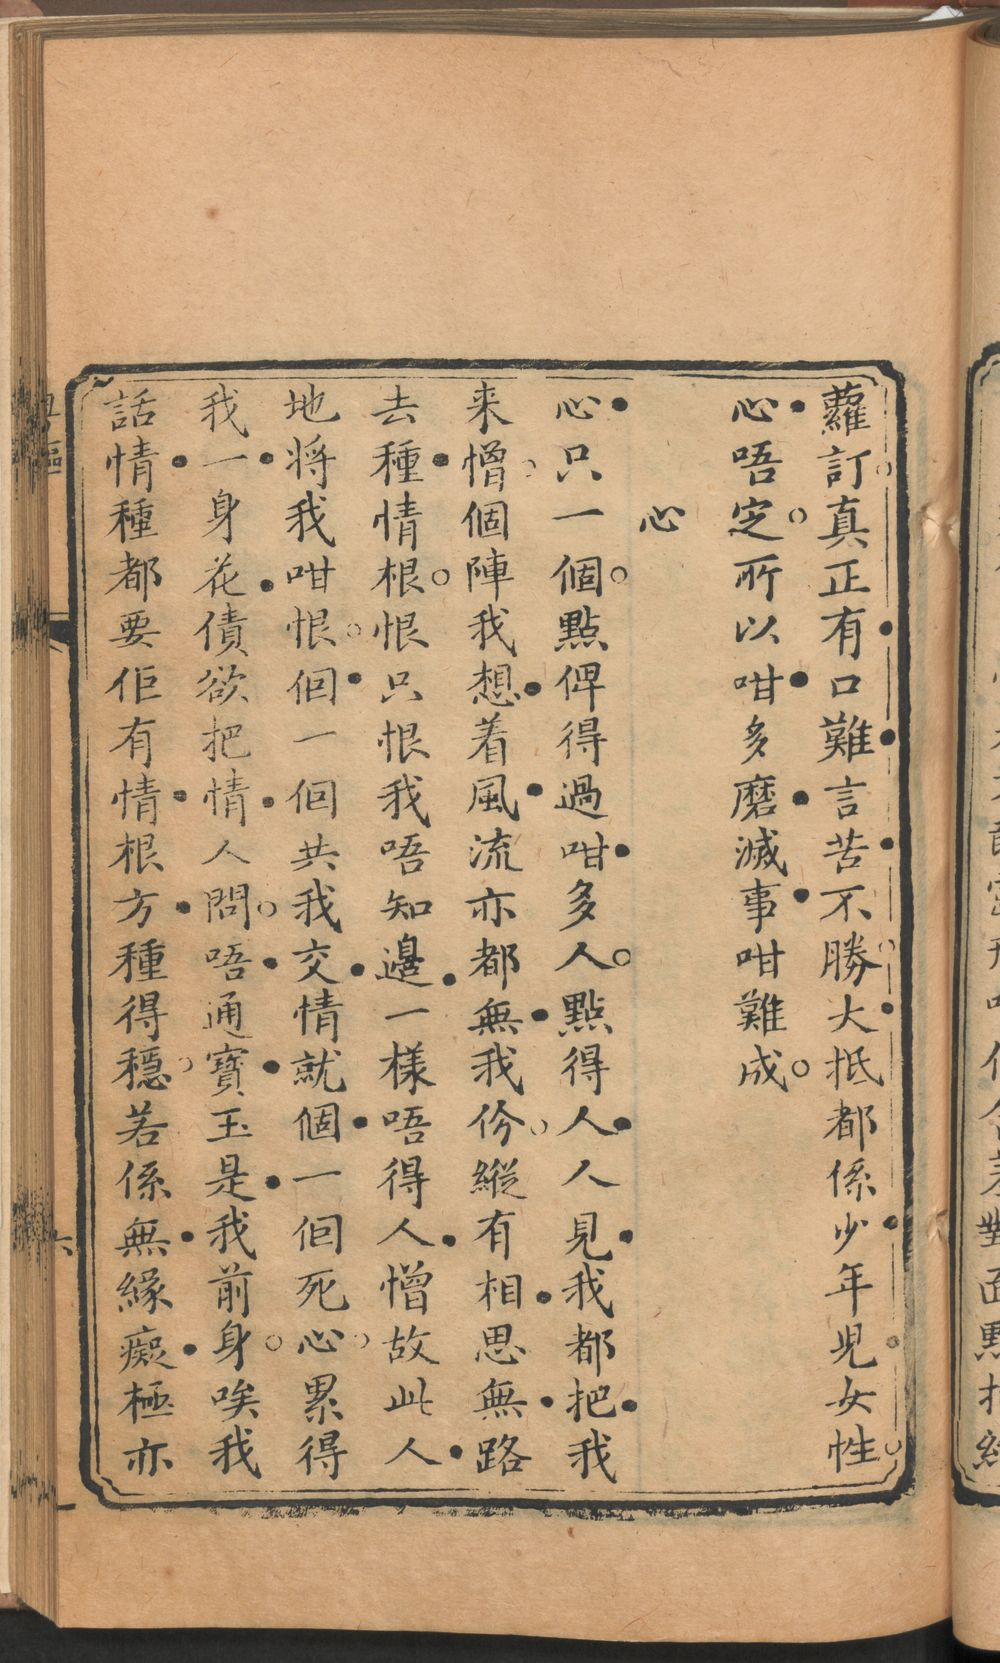 蘿訂真正有口難言苦不勝大抵都係少年児女性
心唔定所以咁多磨滅事咁難成
心
心只一個點俾得過咁多人點得人人見我都把我
来憎個陣我想着風流亦都無我份縱有相思無路
去種情根恨只恨我唔知邊一樣唔得人憎故此人
地將我咁恨佪一佪共我交情就個一佪死心累得
我一身花債欲把情人問唔通寶玉是我前身唉我
話情種都要佢有情根方種得穩若係無緣癡極亦